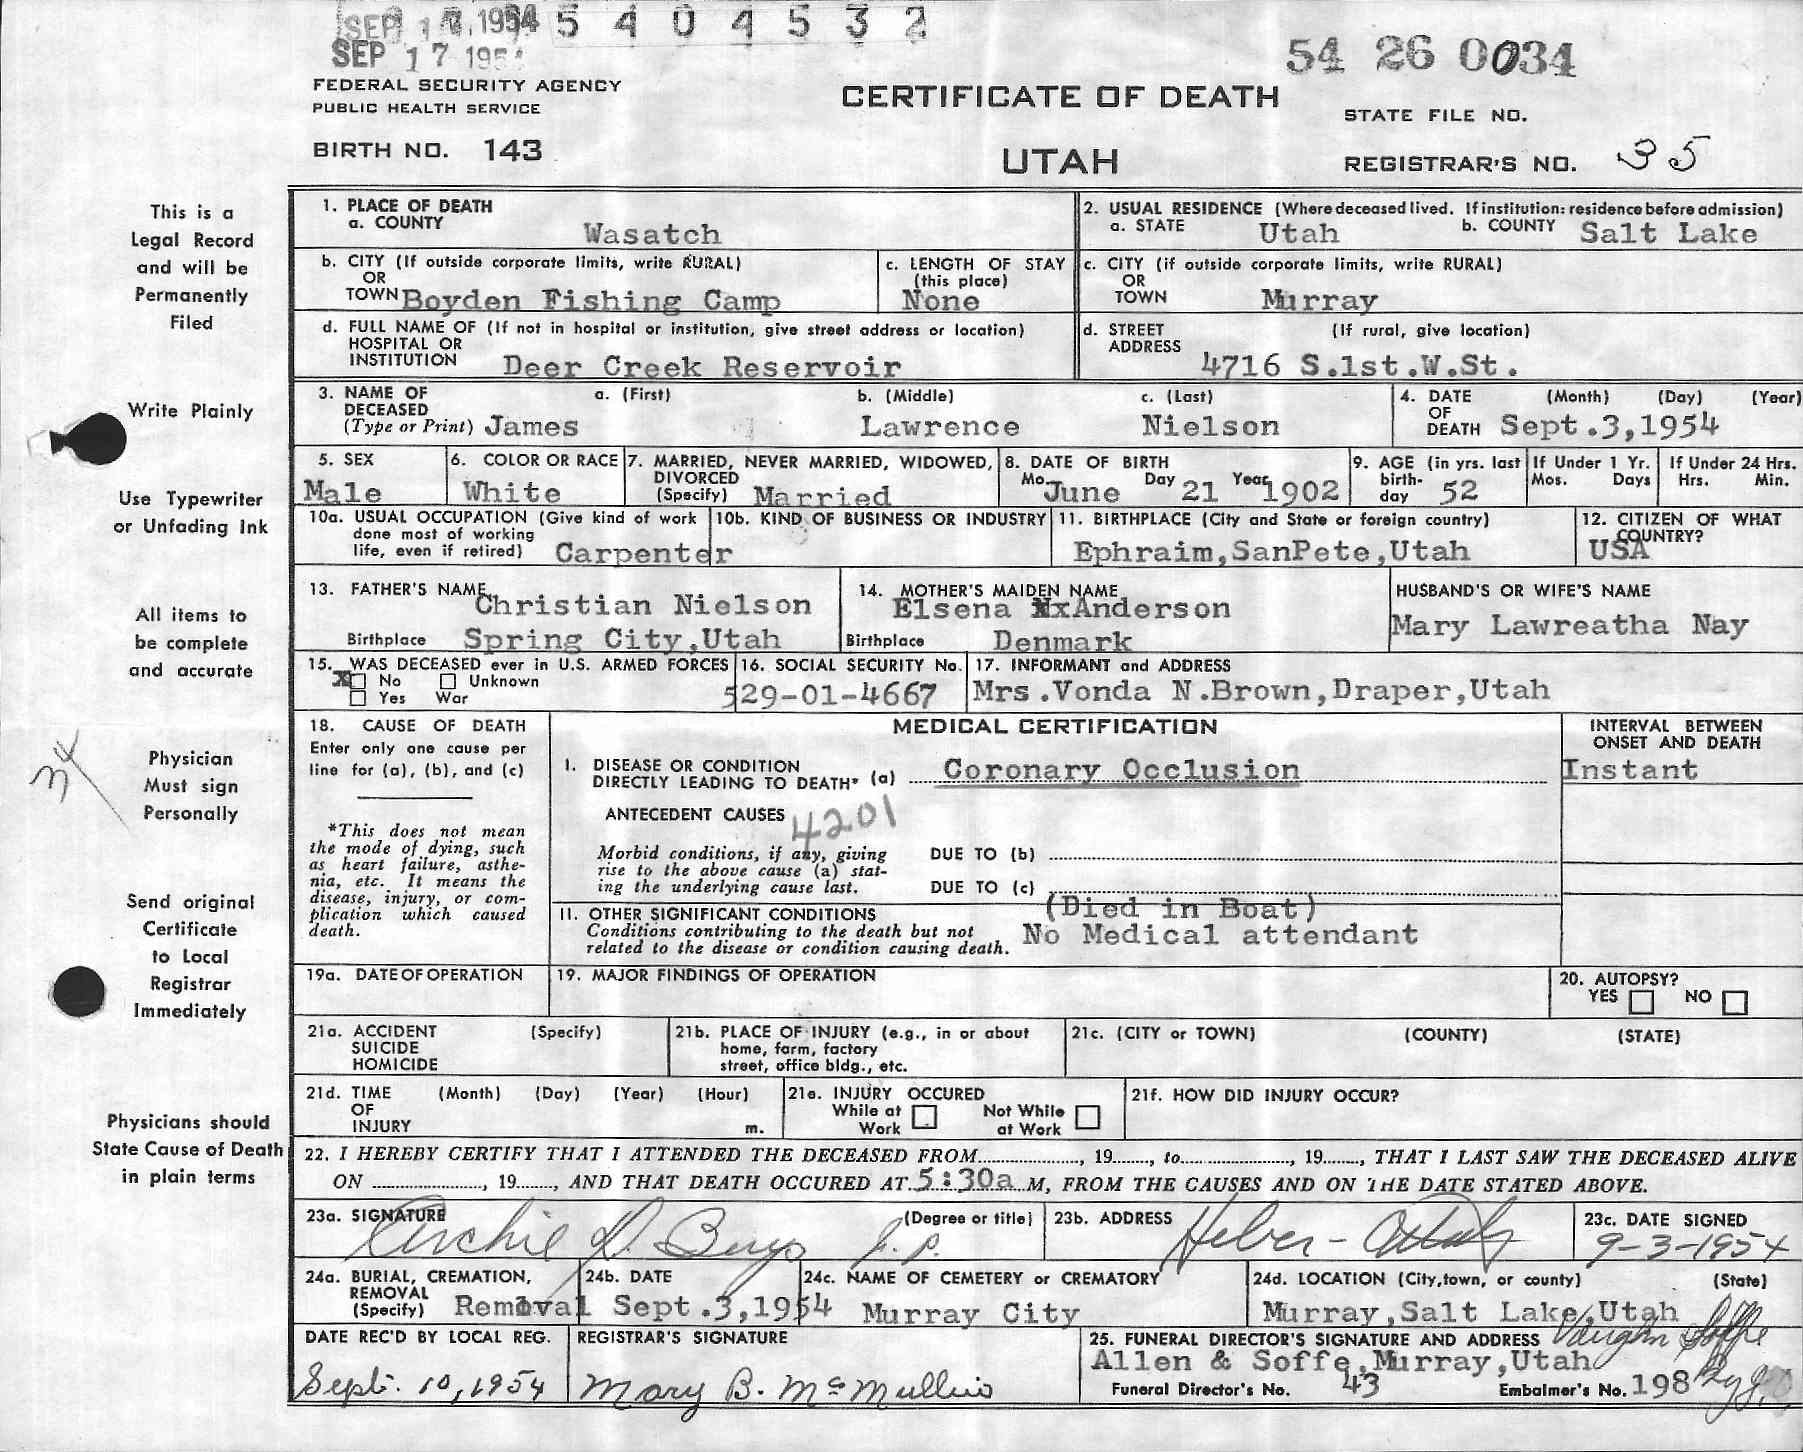 SEP 17 1954 5 4 0 4 5 3 2
SEP 17 195
54 26 0034
FEDERAL SECURITY AGENCY
PUBLIC HEALTH SERVICE
CERTIFICATE OF DEATH
STATE FILE NO.
BIRTH NO. 143
UTAH
REGISTRAR'S NO. 35
This is a
Legal Record
and will be
Permanently
Filed
Write Plainly
Use Typewriter
or Unfading Ink
All items to
be complete
and accurate
Physician
Must sign
Personally
Send original
Certificate
to Local
Registrar
Immediately
Physicians should
State Cause of Death
in plain terms
1. PLACE OF DEATH
a. COUNTY Wasatch
2. USUAL RESIDENCE (Where deceased lived. If institution: residence before admission)
a. STATE Utah b. COUNTY Salt Lake
b. CITY (If outside corporate limits, write RURAL)
OR
TOWN Boyden Fishing Camp
c. LENGTH OF STAY
(this place)
None
c. CITY (if outside corporate limits, write RURAL)
OR
TOWN Murray
d. FULL NAME OF (If not in hospital or institution, give street address or location)
HOSPITAL OR
INSTITUTION Deer Creek Reservoir
d. STREET (If rural, give location)
ADDRESS 4716 S.1st.W.St.
3. NAME OF a. (First) b. (Middle) c. (Last)
DECEASED
(Type or Print) James Lawrence Nielson
4. DATE (Month) (Day) (Year)
OF
DEATH Sept.3,1954
5. SEX
Male
6. COLOR OR RACE
White
7. MARRIED, NEVER MARRIED, WIDOWED,
DIVORCED
(Specify) Married
8. DATE OF BIRTH
Mo. June Day 21 Year 1902
9. AGE (in yrs. last
birth-
day 52
If Under 1 Yr.
Mos. Days
If Under 24 Hrs.
Hrs. Min.
10a. USUAL OCCUPATION (Give kind of work
done most of working
life, even if retired) Carpenter
10b. KIND OF BUSINESS OR INDUSTRY
11. BIRTHPLACE (City and State or foreign country)
Ephraim,SanPete,Utah
12. CITIZEN OF WHAT
COUNTRY?
USA
13. FATHER'S NAME Christian Nielson
Birthplace Spring City,Utah
14. MOTHER'S MAIDEN NAME
Elsena NxAnderson
Birthplace Denmark
HUSBAND'S OR WIFE'S NAME
Mary Lawreatha Nay
15. WAS DECEASED ever in U.S. ARMED FORCES
X No Unknown
Yes War
16. SOCIAL SECURITY No.
529-01-4667
17. INFORMANT and ADDRESS
Mrs.Vonda N.Brown,Draper,Utah
18. CAUSE OF DEATH
Enter only one cause per
line for (a), (b), and (c)
*This does not mean
the mode of dying, such
as heart failure, asthe-
nia, etc. It means the
disease, injury, or com-
plication which caused
death.
MEDICAL CERTIFICATION
INTERVAL BETWEEN
ONSET AND DEATH
I. DISEASE OR CONDITION
DIRECTLY LEADING TO DEATH* (a) Coronary Occlusion
Instant
ANTECEDENT CAUSES 4201
Morbid conditions, if any, giving
rise to the above cause (a) stat-
ing the underlying cause last.
DUE TO (b)
DUE TO (c)
(Died in Boat)
II. OTHER SIGNIFICANT CONDITIONS
Conditions contributing to the death but not
related to the disease or condition causing death.
No Medical attendant
19a. DATE OF OPERATION
19. MAJOR FINDINGS OF OPERATION
20. AUTOPSY?
YES NO
21a. ACCIDENT (Specify)
SUICIDE
HOMICIDE
21b. PLACE OF INJURY (e.g., in or about
home, farm, factory
street, office bldg., etc.
21c. (CITY or TOWN) (COUNTY) (STATE)
21d. TIME (Month) (Day) (Year) (Hour)
OF
INJURY m.
21e. INJURY OCCURED
While at Work Not While at Work
21f. HOW DID INJURY OCCUR?
22. I HEREBY CERTIFY THAT I ATTENDED THE DECEASED FROM, 19, to, 19, THAT I LAST SAW THE DECEASED ALIVE
ON, 19, AND THAT DEATH OCCURED AT 5:30a M, FROM THE CAUSES AND ON THE DATE STATED ABOVE.
23a. SIGNATURE (Degree or title)
Archie D. Buys J.P.
23b. ADDRESS Heber - Utah
23c. DATE SIGNED
9-3-1954
24a. BURIAL, CREMATION,
REMOVAL
(Specify) Removal
24b. DATE
Sept.3,1954
24c. NAME OF CEMETERY or CREMATORY
Murray City
24d. LOCATION (City,town, or county) (State)
Murray,Salt Lake,Utah
DATE REC'D BY LOCAL REG.
Sept. 10, 1954
REGISTRAR'S SIGNATURE
Mary B. McMullin
25. FUNERAL DIRECTOR'S SIGNATURE AND ADDRESS Vaughn Soffe
Allen & Soffe,Murray,Utah
Funeral Director's No. 43 Embalmer's No. 198